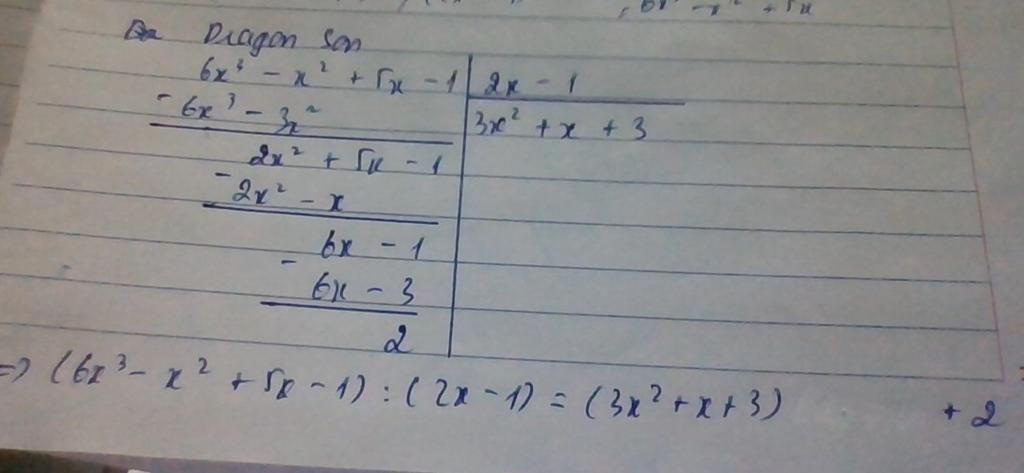 6x³ - x² + 5x
Dragon Son
6x³ - x² + 5x - 1 | 2x - 1
- 6x³ - 3x² | 3x² + x + 3
2x² + 5x - 1
- 2x² - x
6x - 1
-
6x - 3
2
=> (6x³ - x² + 5x - 1) : (2x - 1) = (3x² + x + 3) + 2